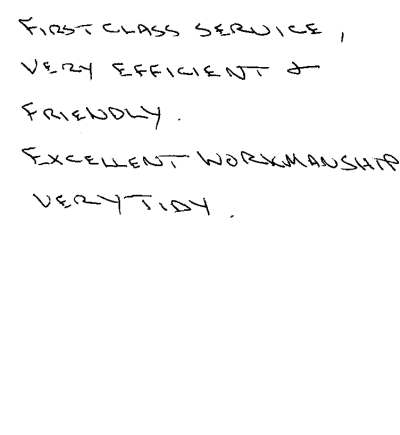 FIRST CLASS SERVICE,
VERY EFFICIENT &
FRIENDLY.
EXCELLENT WORKMANSHIP
VERY TIDY.